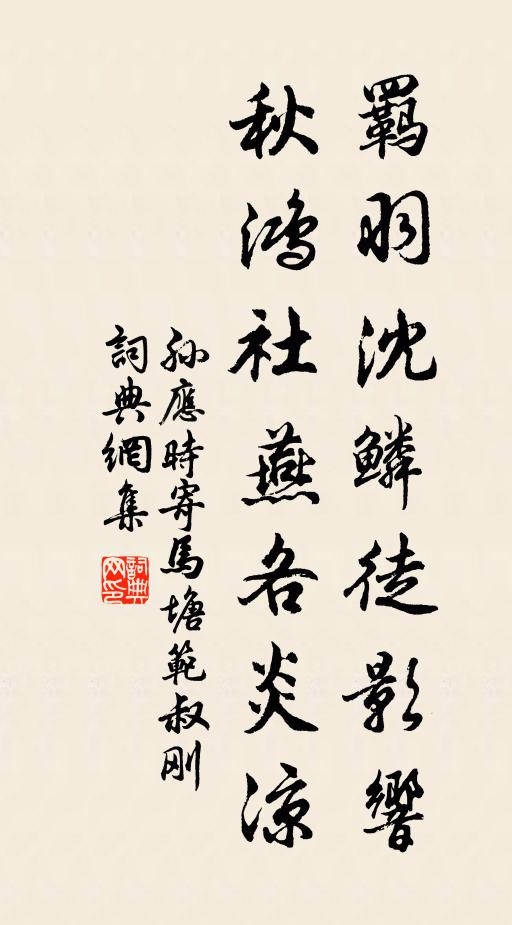 羈羽沈鱗徒影響
秋鴻社燕各炎涼
孫應時寄馬塘範叔刚
詞典網集
詞典网印